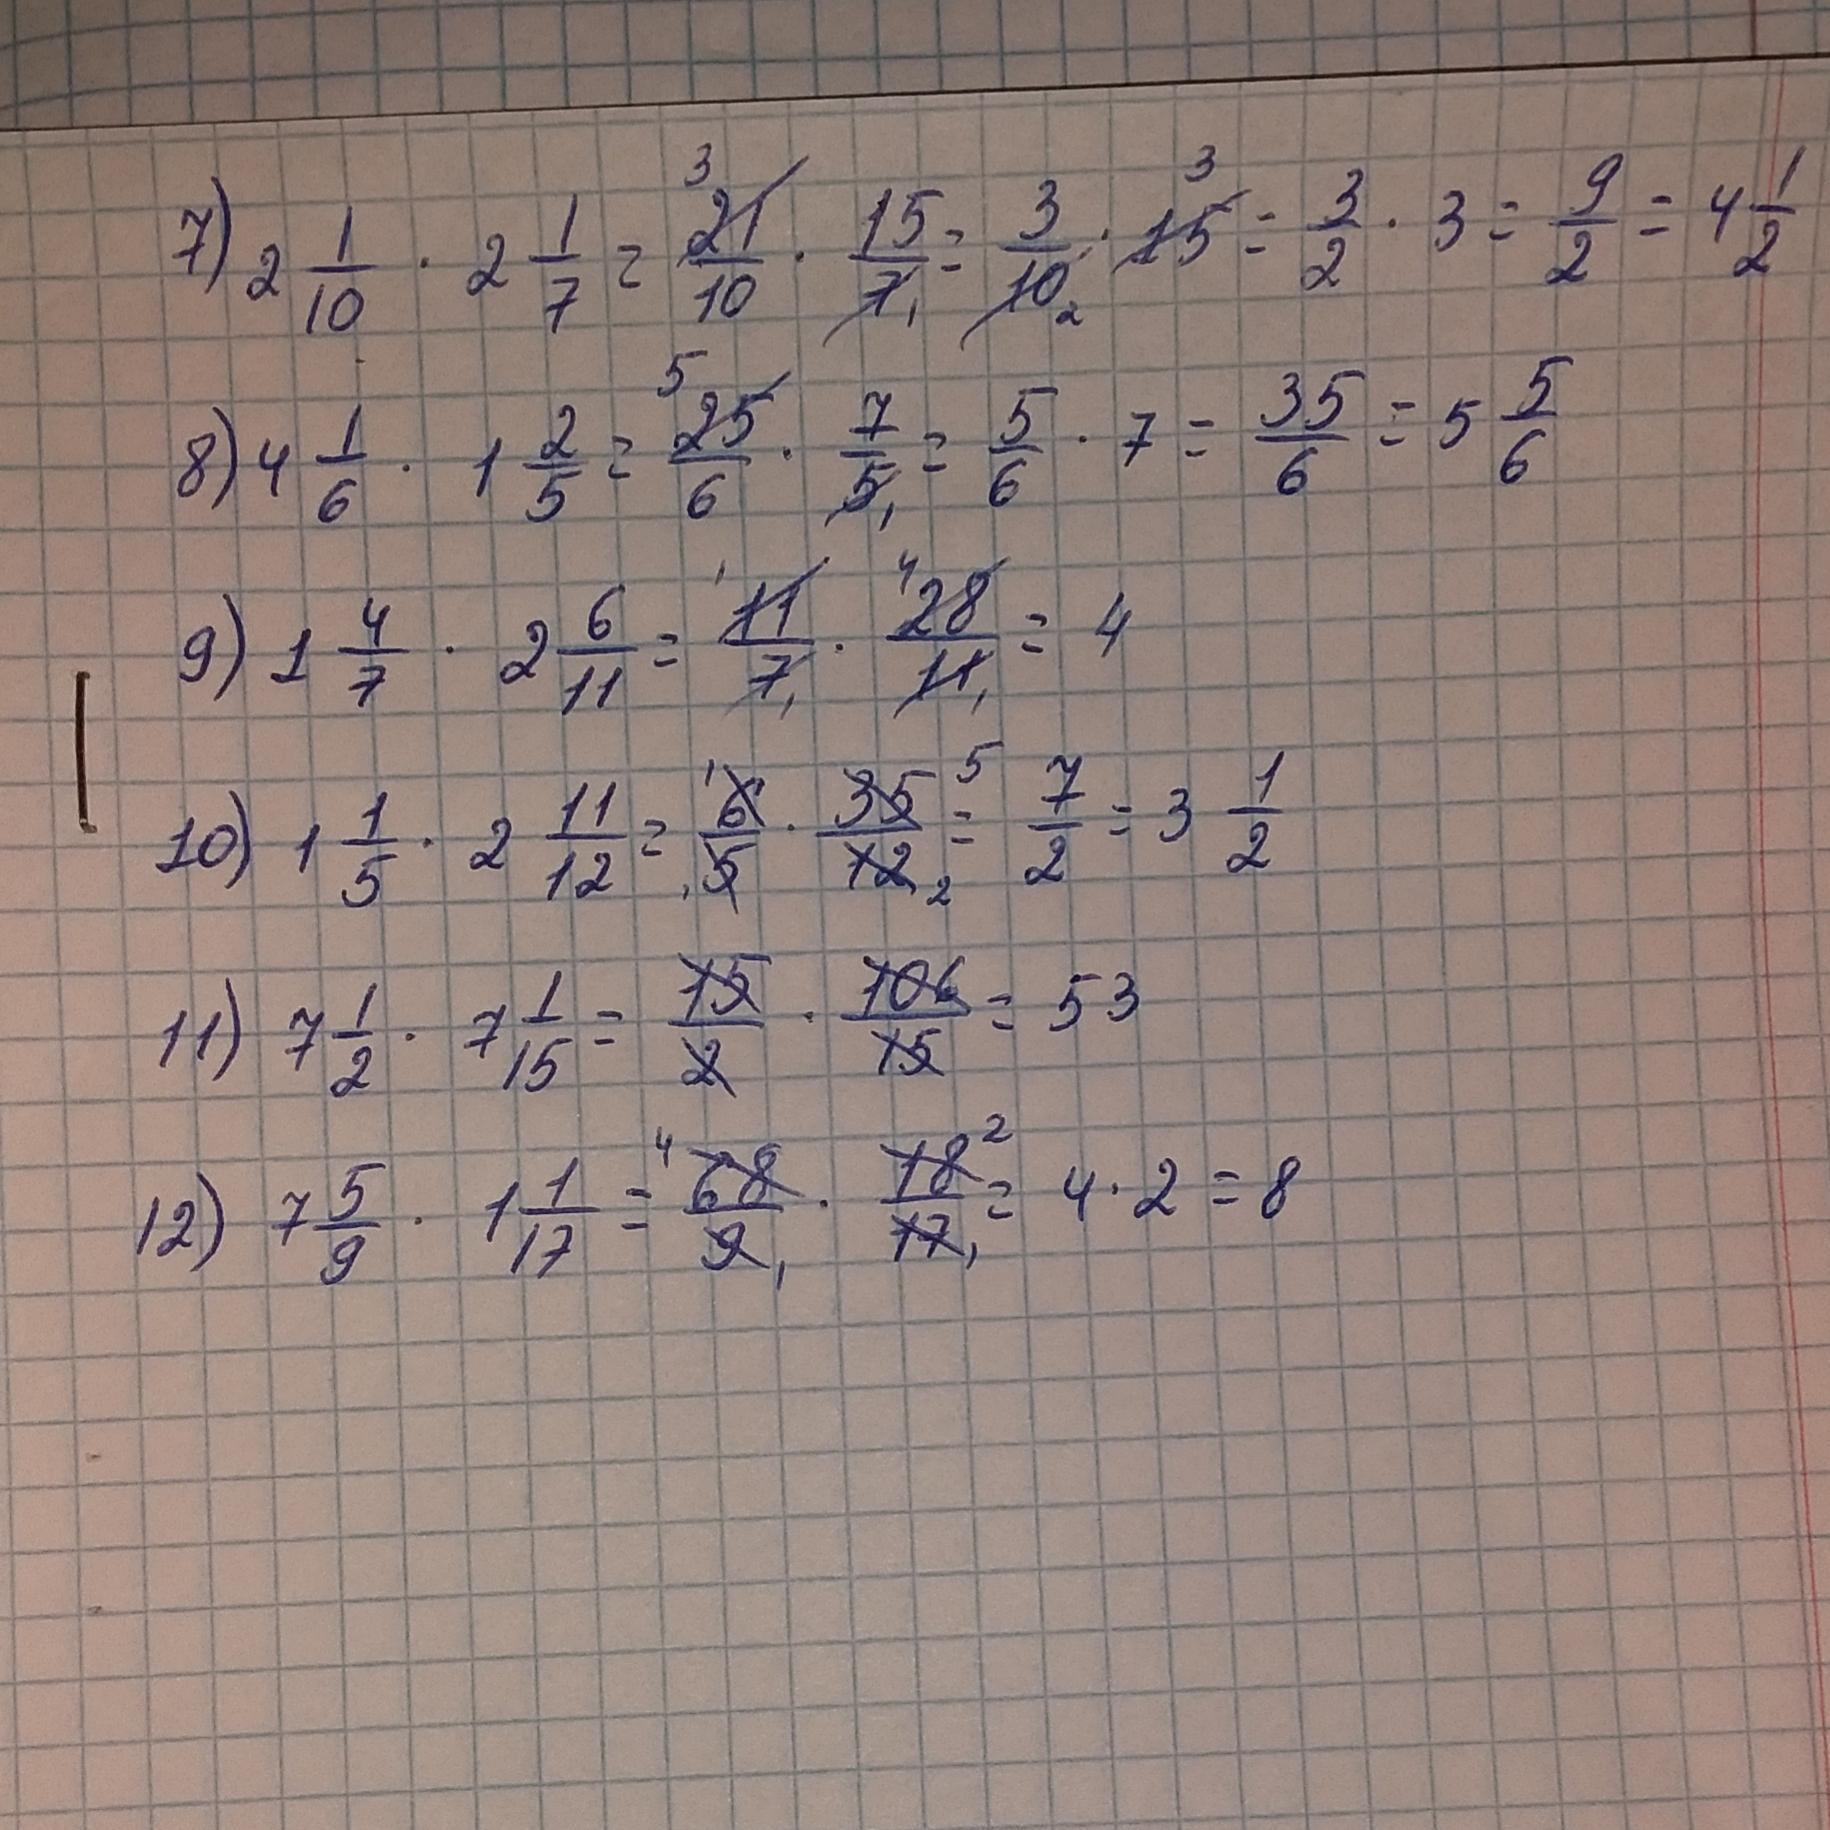 7) 2 1/10 · 2 1/7 = 21/10 · 15/7 = 3/10 · 15 = 3/2 · 3 = 9/2 = 4 1/2
8) 4 1/6 · 1 2/5 = 25/6 · 7/5 = 5/6 · 7 = 35/6 = 5 5/6
9) 1 4/7 · 2 6/11 = 11/7 · 28/11 = 4
10) 1 1/5 · 2 11/12 = 6/5 · 35/12 = 7/2 = 3 1/2
11) 7 1/2 · 7 1/15 = 15/2 · 106/15 = 53
12) 7 5/9 · 1 1/17 = 68/9 · 18/17 = 4 · 2 = 8